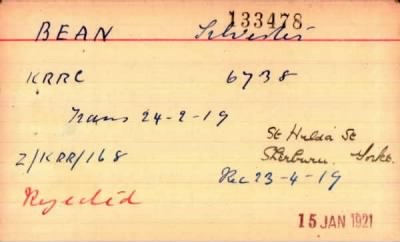 133478
BEAN Silvester
KRRC 6738
Trans 24-2-19
St Hilda St
Z/KRR/168 Sherburn. Yorks.
Rec 23-4-19
Rejected
15 JAN 1921